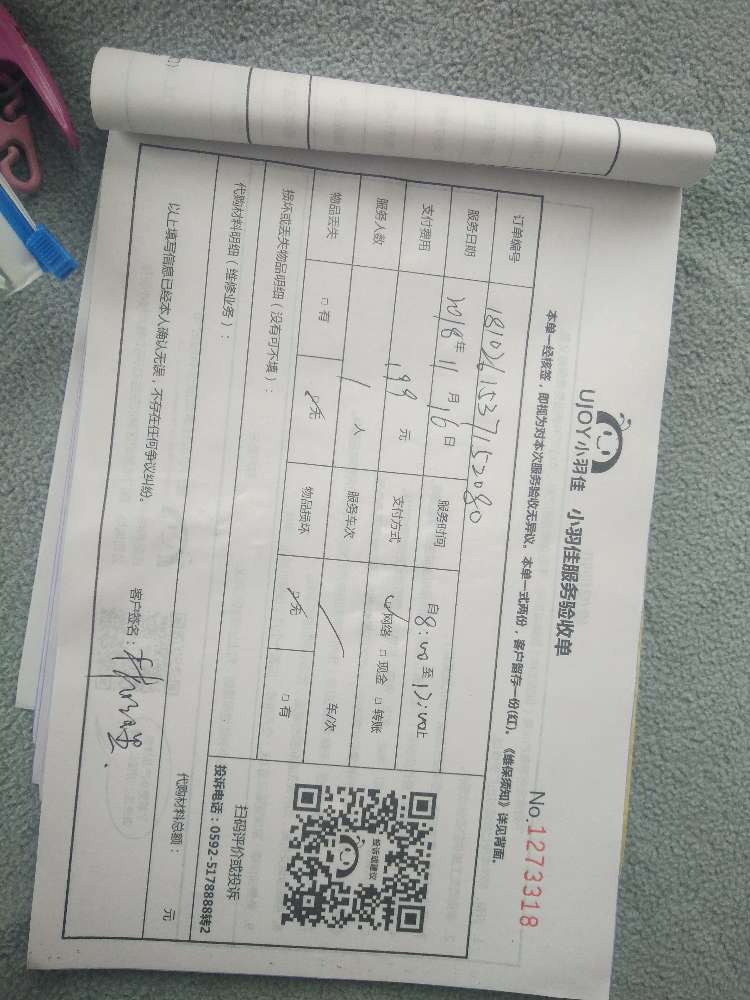 UJOY小羽佳 小羽佳服务验收单
No.1273318
本单一经核签，即视为对本次服务验收无异议。本单一式两份，客户留存一份(红)。《维保须知》详见背面。
订单编号 1810261537152080
服务日期 2018年11月16日 服务时间 自8:00至12:00止
支付费用 199元 支付方式 ☑网络 □现金 □转账
服务人数 1人 服务车次 / 车/次
物品丢失 □有 ☑无 物品损坏 ☑无 □有
损坏或丢失物品明细（没有可不填）：
投诉或建议
扫码评价或投诉
投诉电话：0592-5178888转2
代购材料明细（维修业务）：
代购材料总额： 元
以上填写信息已经本人确认无误，不存在任何争议纠纷。
客户签名：